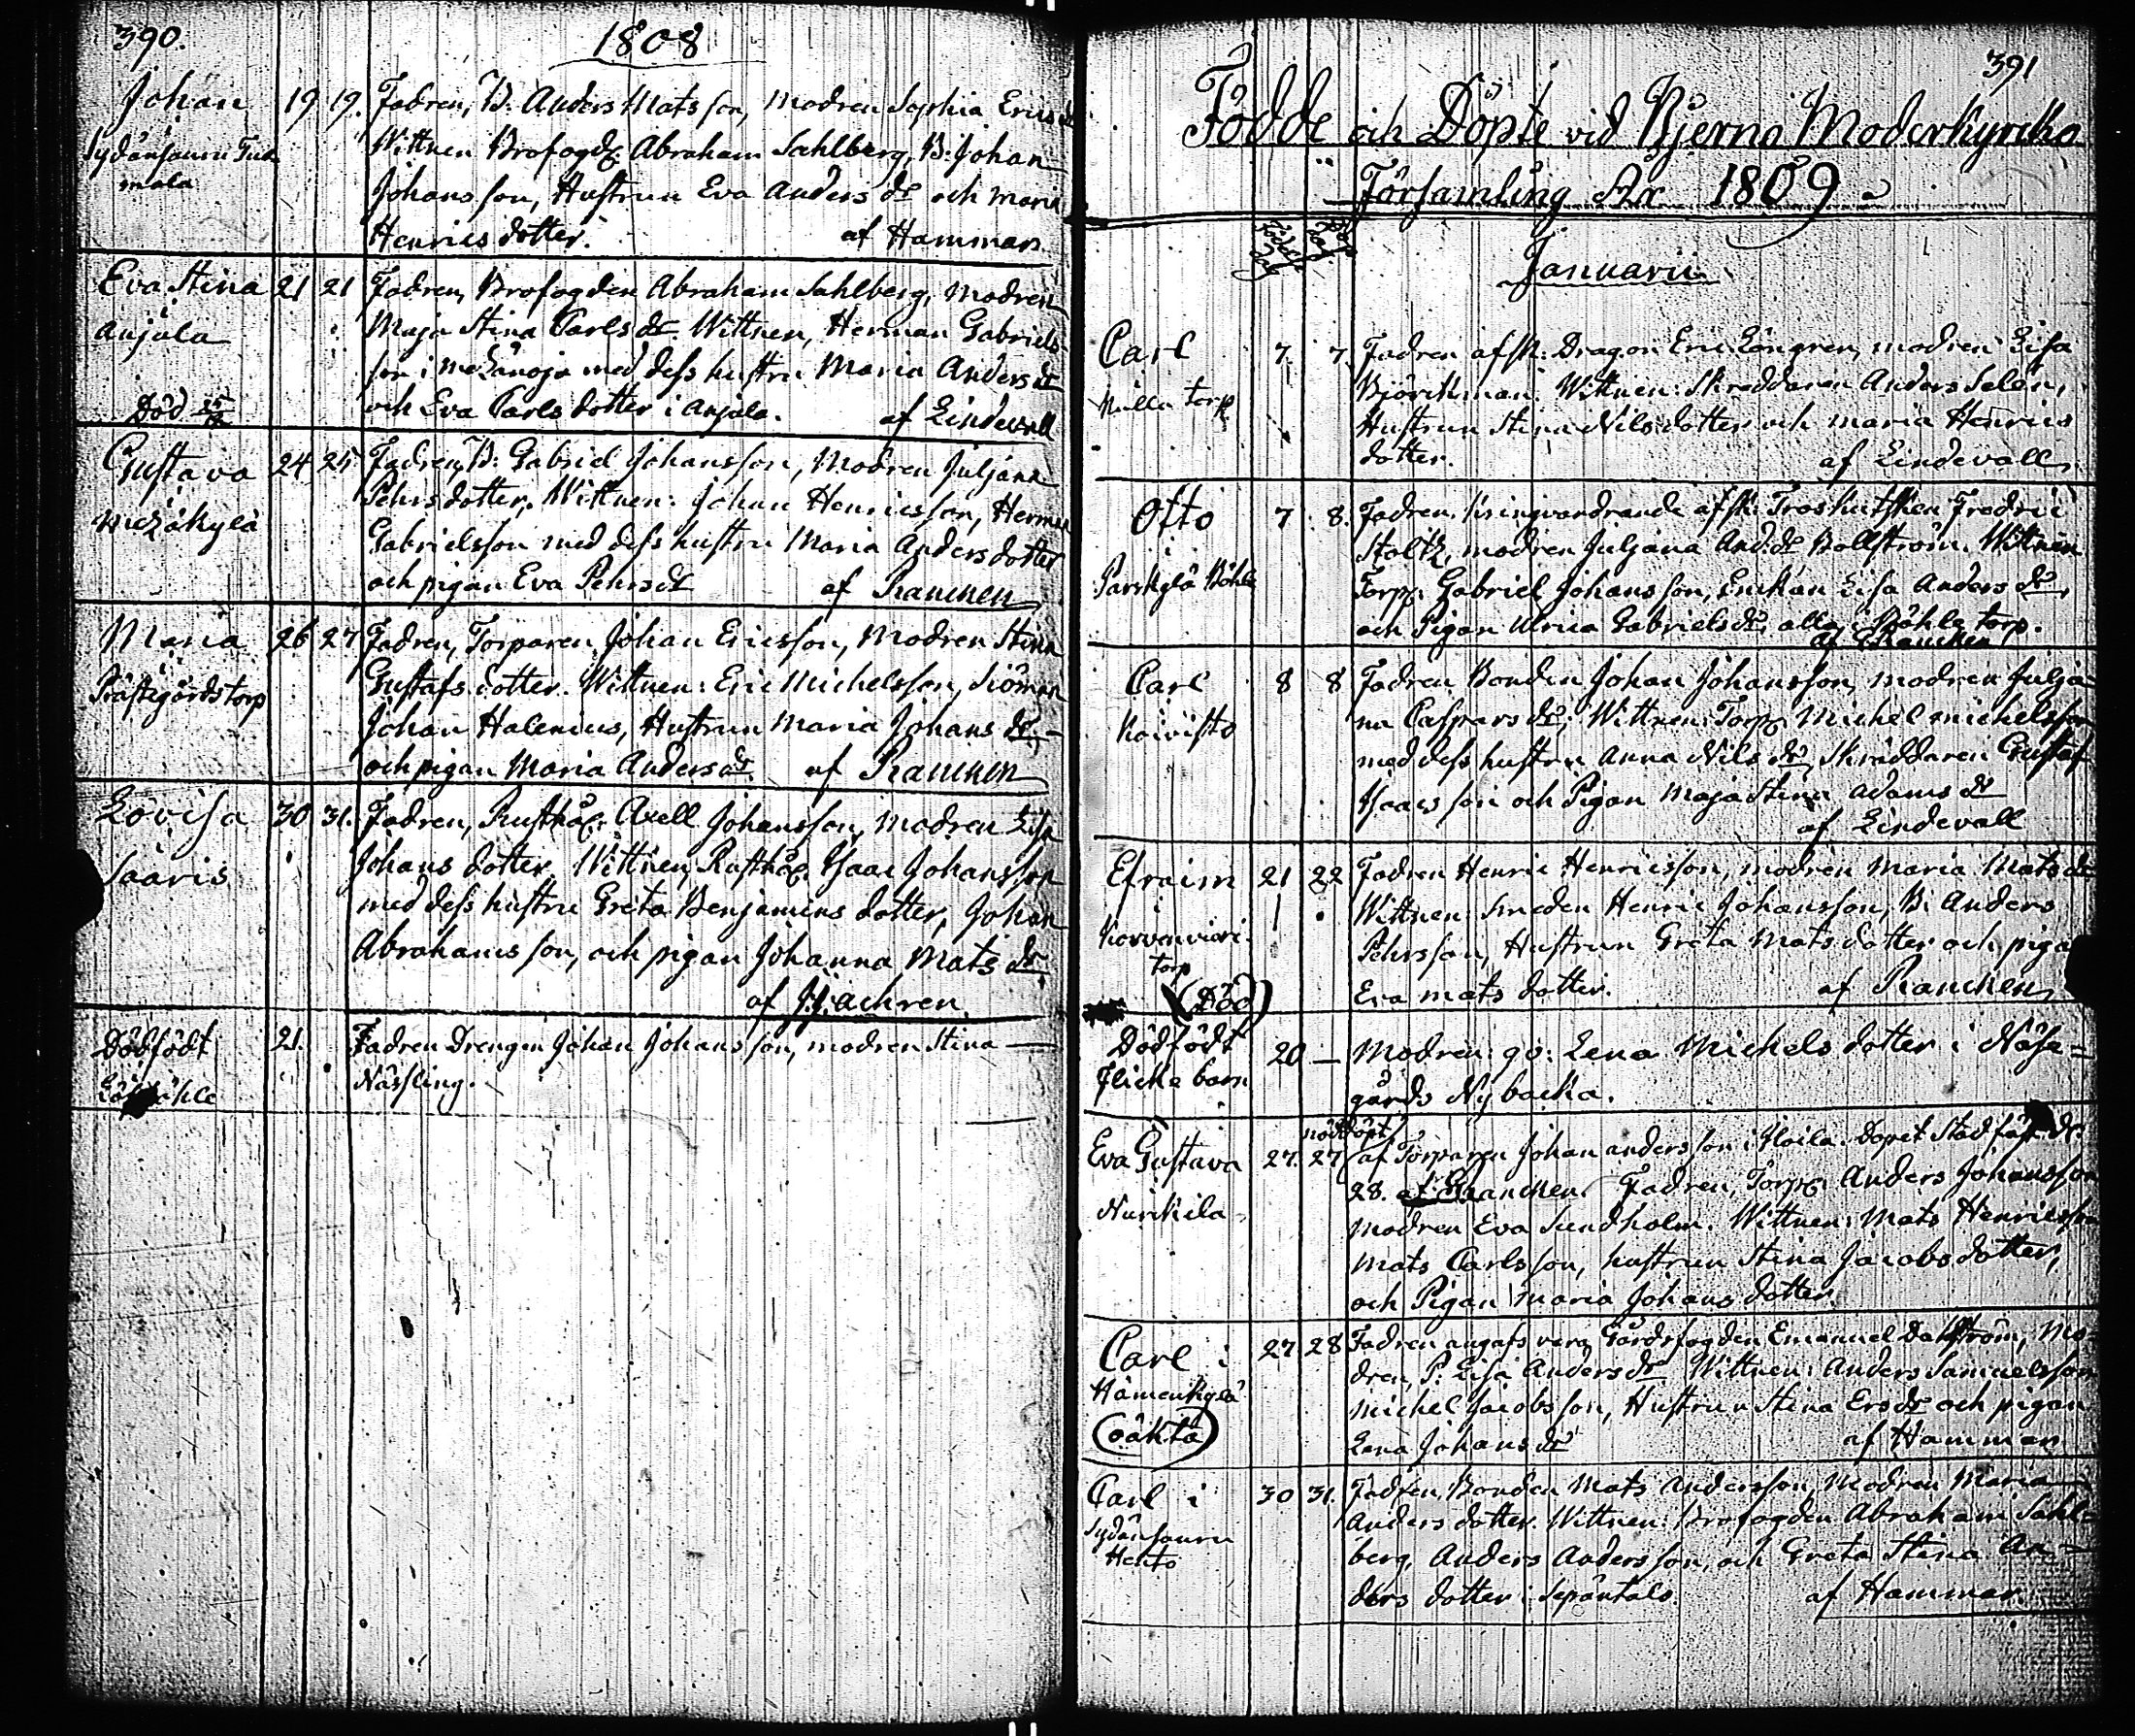 390.
1808
Johan 19 19. Fadren, B: Anders Matsson, modren Sophia Erics dr
Sydänsauru Tuk Wittnen Brofogd: Abraham Sahlberg, B: Johan
mala Johansson, Hustrun Eva Anders dr och Maria
Henrics dotter. af Hammar.
Eva Stina 21 21 Fadren, Brofogden Abraham Sahlberg, Modren
Anjala Maja Stina Carls dr. Wittnen, Herman Gabriels-
son i med dess hustru Maria Anders dr
Död och Eva Carls dotter i Anjala. af Lindevall
Gustava 24 25 Fadren, B: Gabriel Johansson, Modren Juljana
i Pehrs dotter. Wittnen: Johan Henricsson, Herman
Mezäkylä Gabrielsson med dess hustru Maria Anders dotter
och pigan Eva Pehrs dr af Rancken
Maria 26 27 Fadren, Torparen Johan Ericsson, Modren Stina
Prästegårds torp Gustafs dotter. Wittnen: Eric Michelsson, Siöman
Johan Halenius, Hustrun Maria Johans dr,
och pigan Maria Anders dr. af Rancken
Lovisa 30 31. Fadren, Rusthå: Axell Johansson, Modren Lisa
Saaris Johans dotter. Wittnen, Rusthå: Isaac Johansson
med dess hustru Greta Benjamins dotter, Johan
Abrahamsson, och pigan Johanna Mats dr
af
Dödfödt 21. Fadren Drengen Johan Johansson, modren Stina
Nässling.
391
Födde och Döpte vid Bjerno Moderkyrcko
Församling År 1809
Födelse dag Döpelse dag
Januarii
Carl 7. 7. Fadren afsk: Dragon Eric Löngren, modren Lisa
Kulla torp Björckman. Wittnen: Skreddaren Anders Selen,
Hustrun Stina Nilsdotter och Maria Henrics
dotter. af Lindevall
Otto 7 8. Fadren, kringvandrande afsk: Trosskusken Fredric
i Stoltz, modren Juljana And: dr Bollström. Wittnen
Parskylä Böhle Torp: Gabriel Johansson, Enckan Lisa Anders dr,
och Pigan Ulrica Gabriels dr, alla i Böhle torp.
af Rancken
Carl 8 8 Fadren Bonden Johan Johansson, modren Julja-
Koivisto na Caspars dr; Wittnen: Torp: Michel Michelsson
med dess hustru Anna Nils dr, Skräddaren Gustaf
Isacsson och Pigan Maja Stina Adams dr
af Lindevall
Efraim 21 22 Fadren Henric Henricsson, modren Maria Mats dr
i Wittnen Smeden Henric Johansson, B: Anders
torp Pehrsson, Hustrun Greta Mats dotter och pigan
(Död) Eva Mats dotter. af Rancken
Dödfödt 20 — Modren: q:s: Lena Michels dotter i Näse=
Flicke barn gårds Nybacka.
Eva Gustava 27. 27 nöddöpt af Torparen Johan Andersson i Ylöila. Dopet Stadfäst: d:
28. af Rancken. Fadren, Torp: Anders Johansson
Nurkkila modren Eva Sundholm. Wittnen: Mats Henricsson
Mats Carlsson, hustrun Stina Jacobs dotter,
och Pigan Maria Johans dotter.
Carl i 27 28 Fadren angafs vara Gårdsfogden Emanuel Dahlström, Mo-
Hämenkylä dren, P: Lisa Anders dr Wittnen: Anders Samuelsson
(oäkta) Michel Jacobsson, Hustrun Stina Ersdr och pigan
Lena Johans dr af Hammar
Carl i 30 31. Fadren, Bonden Mats Andersson, Modren Maria
Sydänsauru Anders dotter. Wittnen: Brofogden Abraham Sahl=
Hento berg, Anders Andersson, och Greta Stina An=
ders dotter i Sepäntalo. af Hammar.